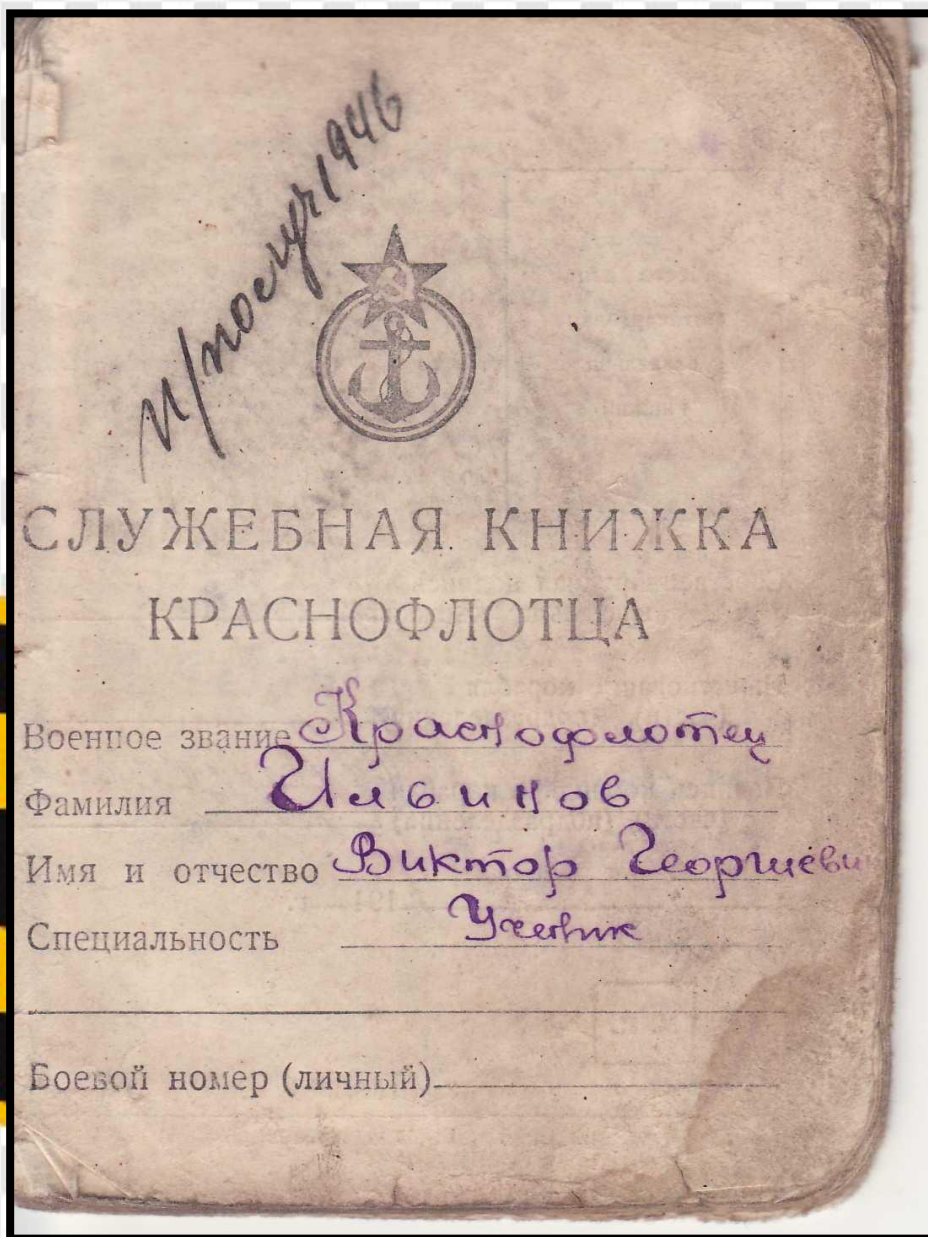 1946
СЛУЖЕБНАЯ КНИЖКА
КРАСНОФЛОТЦА
Военное звание Краснофлотец
Фамилия Ильинов
Имя и отчество Виктор Георгиеви
Специальность Ученик
Боевой номер (личный)